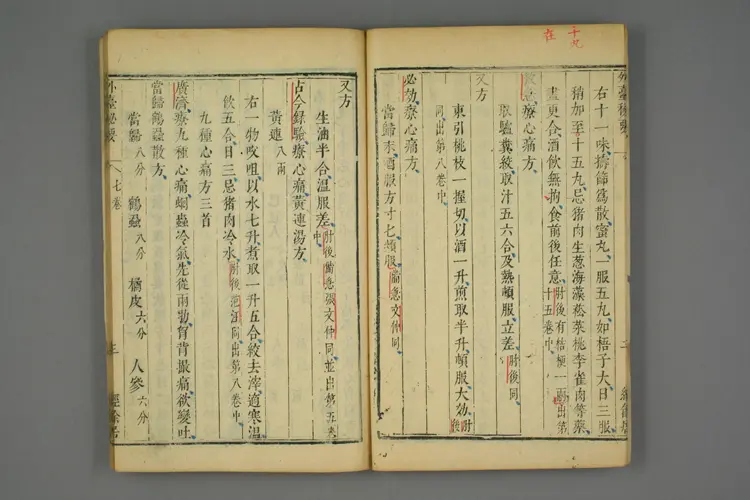 千九
在
外臺秘要
右十一味擣篩為散蜜丸一服五丸如梧子大日三服
稍加至十五丸忌猪肉生葱海藻菘菜桃李雀肉等藥
盡更合酒飲無拘食前後任意肘後有桔梗一兩出第十五卷中
救急療心痛方
取驢糞絞取汁五六合及熱頓服立差肘後同
又方
東引桃枝一握切以酒一升煎取半升頓服大効肘後
同出第八卷中
必効療心痛方
當歸末酒服方寸匕頻服備急文仲同
又方
生油半合溫服差肘後備急張文仲同並出第五卷中
古今録驗療心痛黃連湯方
黃連八兩
右一物㕮咀以水七升煮取一升五合絞去滓適寒溫
飲五合日三忌猪肉冷水肘後范汪同出第八卷中
九種心痛方三首
廣濟療九種心痛蚘蟲冷氣先從兩肋胷背撮痛欲變吐
當歸鶴蝨散方
當歸八分 鶴蝨八分 橘皮六分 人參六分
外臺秘要
七卷
三
經餘居